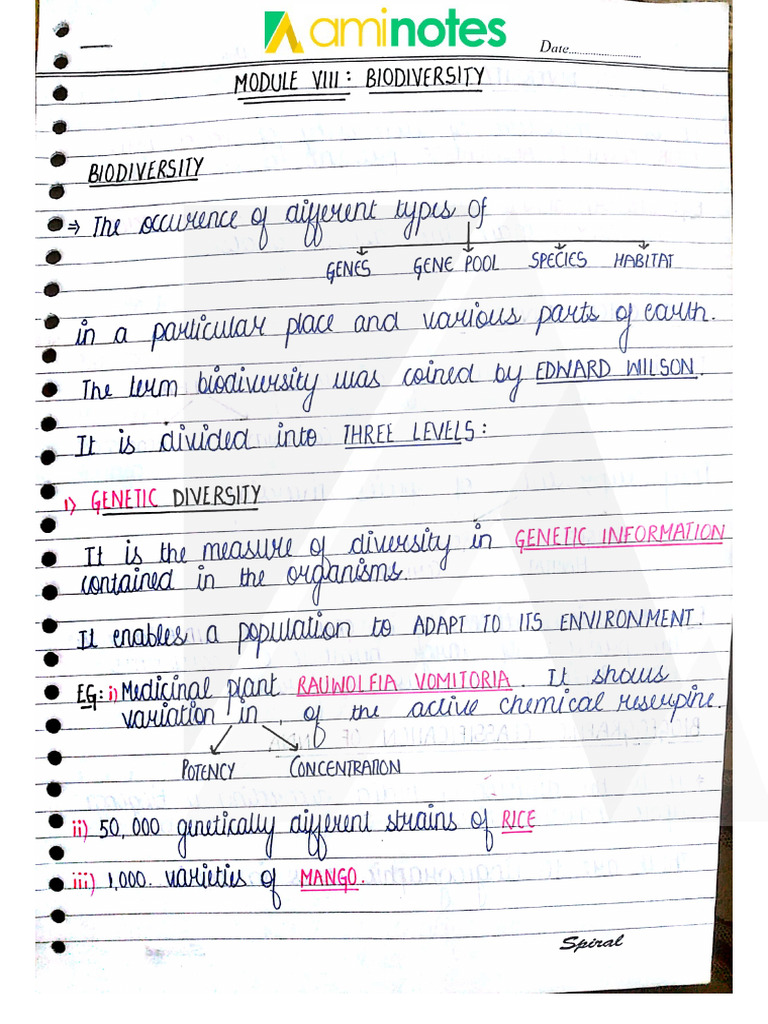 aminotes
Date
MODULE VIII: BIODIVERSITY
BIODIVERSITY
⇒ The occurence of different types of
GENES GENE POOL SPECIES HABITAT
in a particular place and various parts of earth.
The term biodiversity was coined by EDWARD WILSON.
It is divided into THREE LEVELS:
1) GENETIC DIVERSITY
It is the measure of diversity in GENETIC INFORMATION
contained in the organisms.
It enables a population to ADAPT TO ITS ENVIRONMENT.
EG: i) Medicinal plant RAUWOLFIA VOMITORIA. It shows
variation in , of the active chemical reserpine.
POTENCY CONCENTRATION
ii) 50,000 genetically different strains of RICE
iii) 1,000. varieties of MANGO.
Spiral